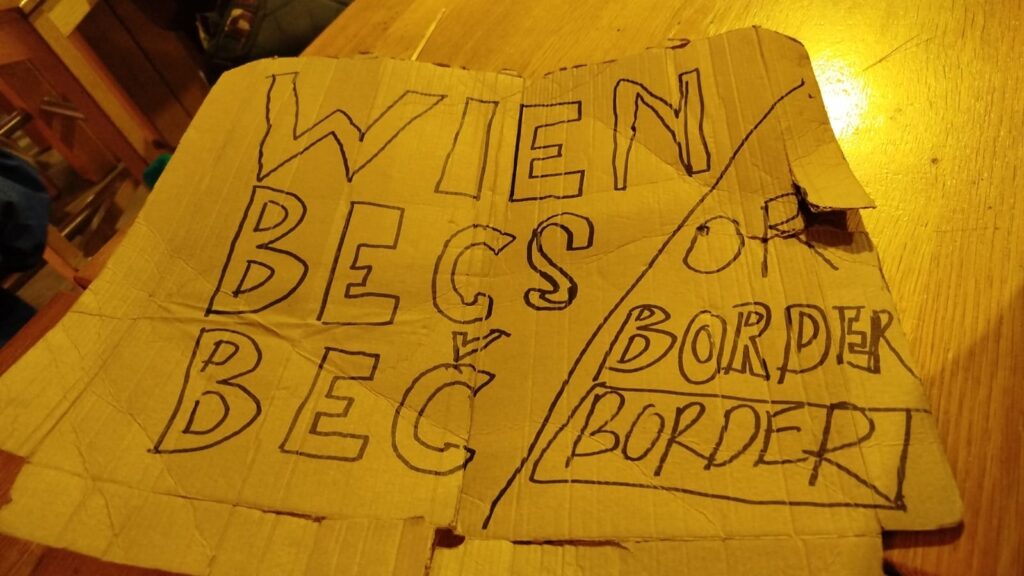 WIEN
BECS
BEČ
OR
BORDER
BORDER